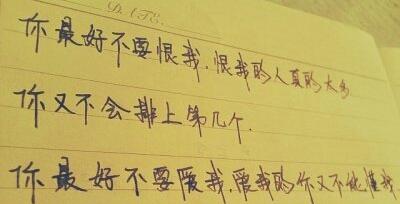 DATE.
你最好不要恨我.恨我的人真的太多
你又不会排上第几个.
你最好不要爱我.爱我的你又不能懂我